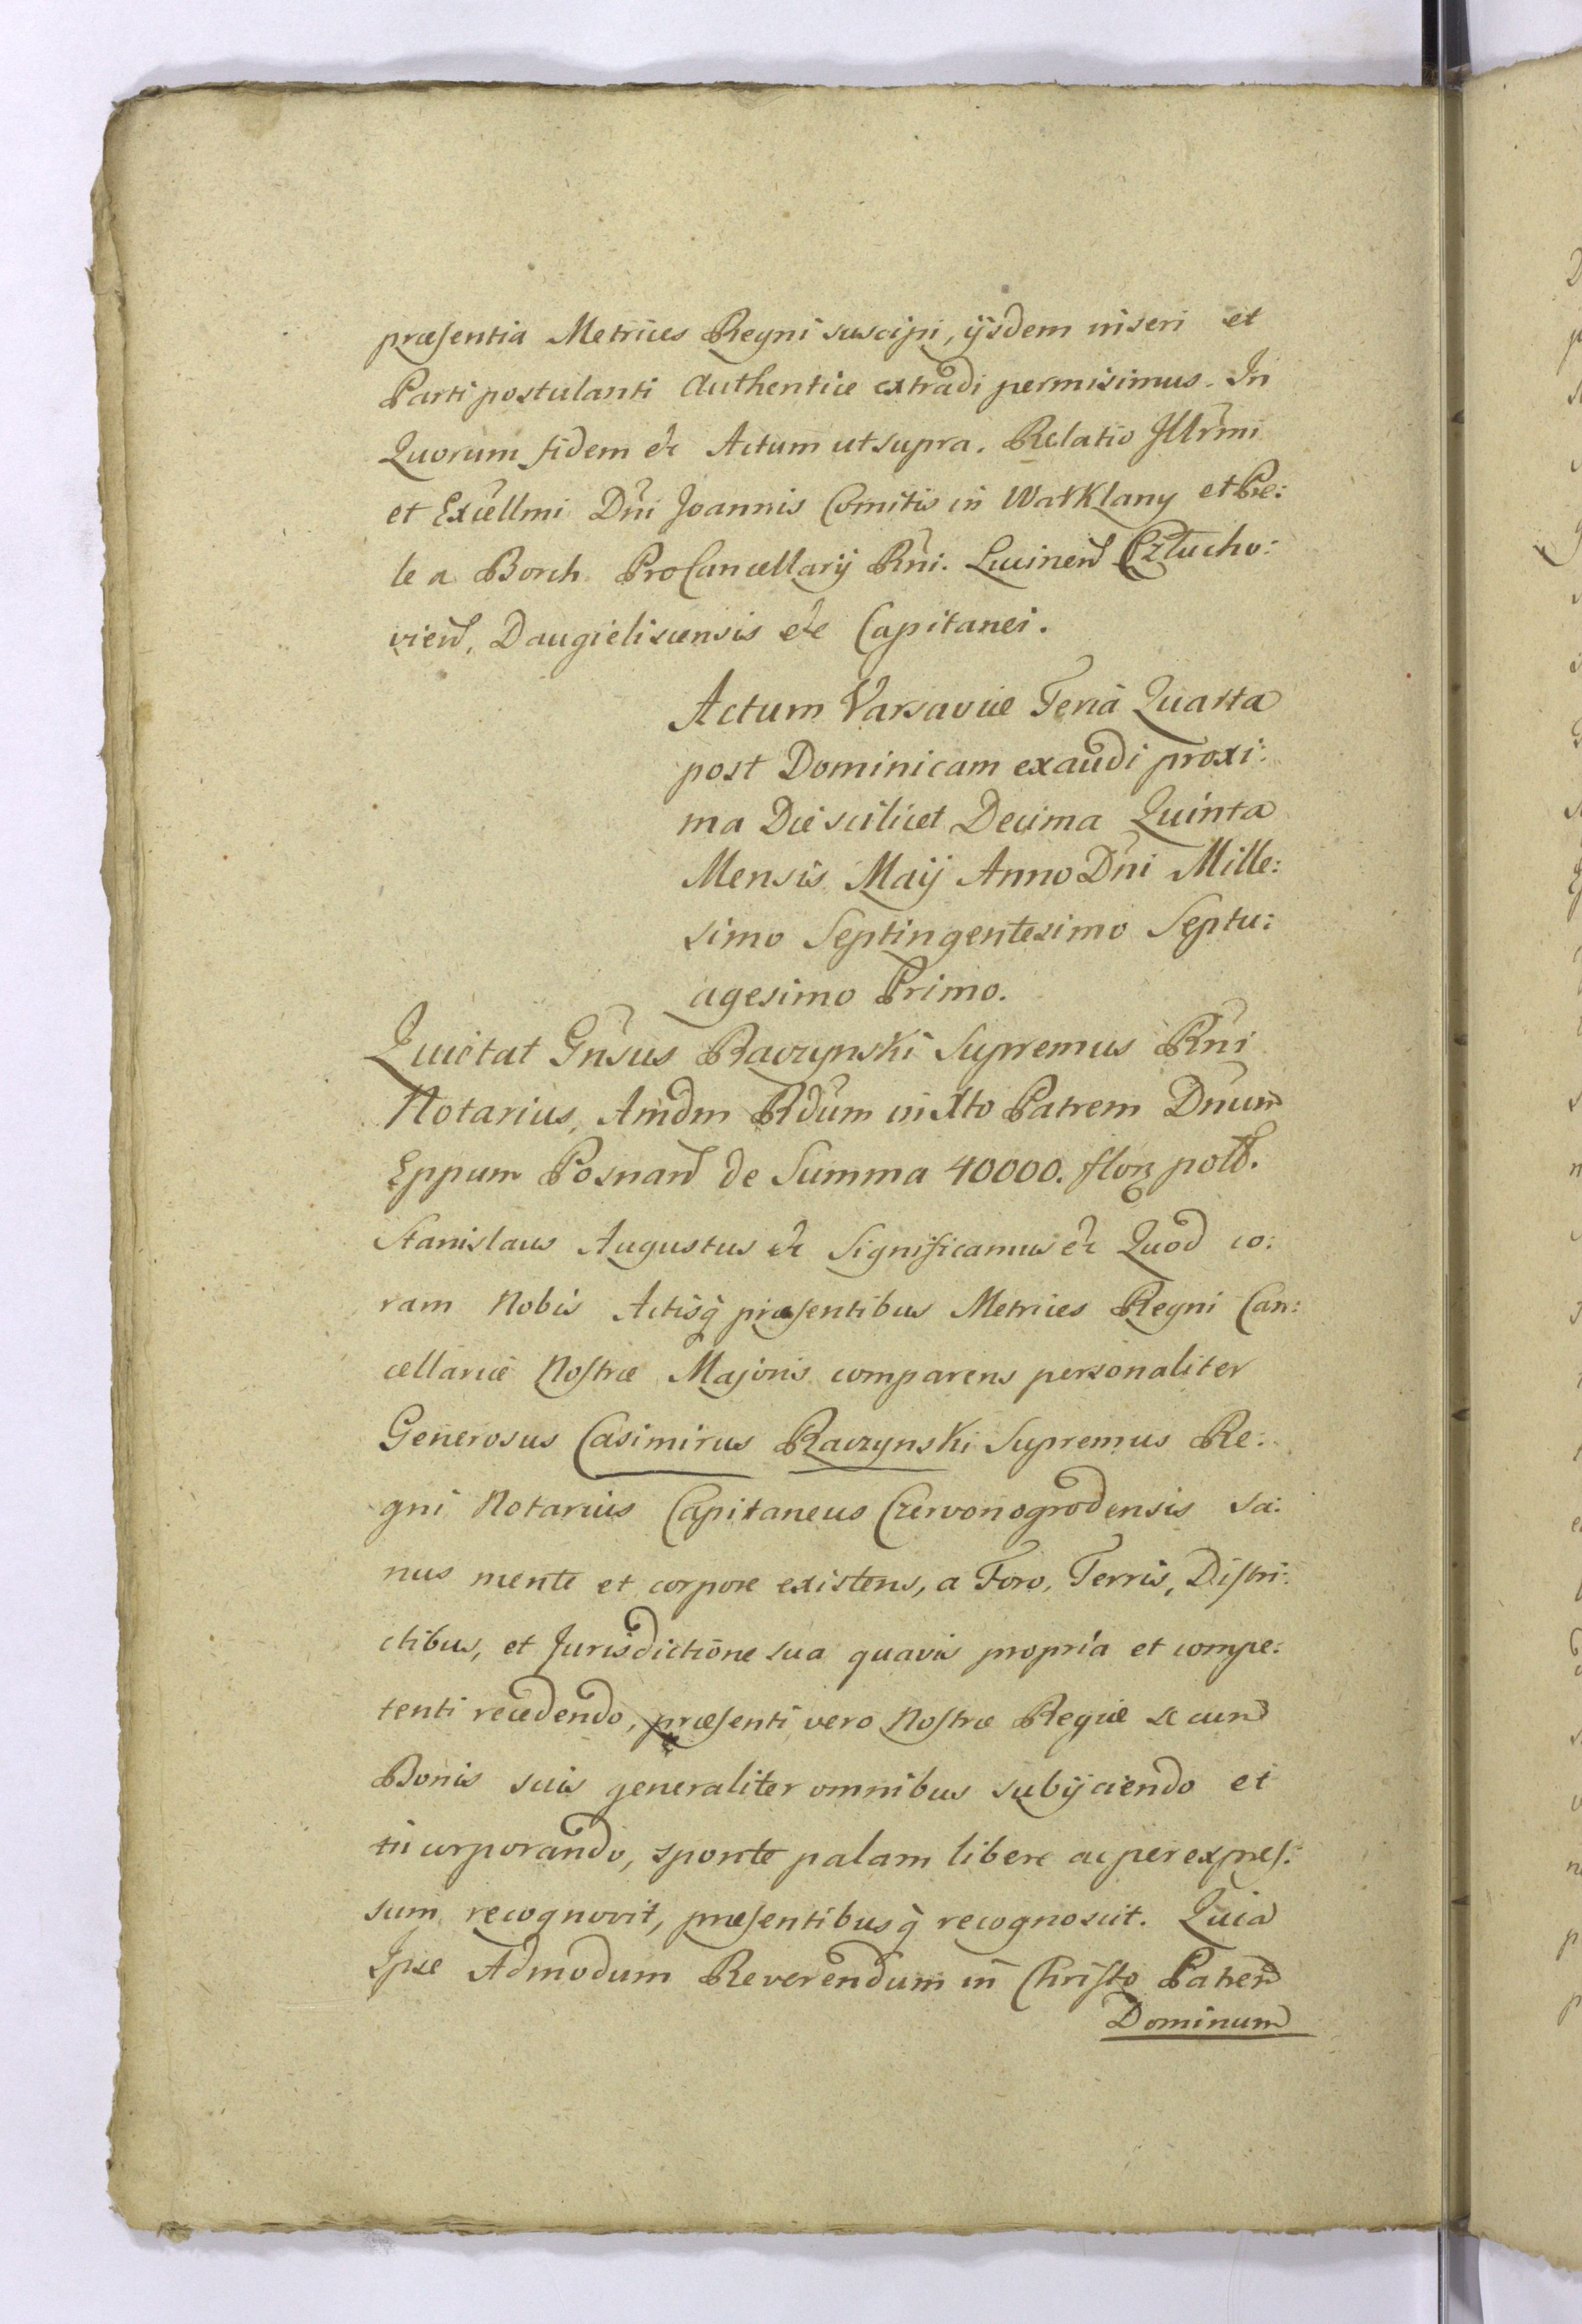 præsentia Metrices Regni suscipi, ijsdem inseri et
Parti postulanti Authentice extradi permisimus. In
Quorum fidem &c Actum ut supra. Relatio Jllrmi
et Excellmi Dni Joannis Comitis in Warklany et Pre:
le a Borch ProCancellarij Rni. Lucinens Człucho:
viens, Daugieliscensis &c Capitanei.
Actum Varsaviæ Feria Quarta
post Dominicam exaudi proxi:
ma Die scilicet Decima Quinta
Mensis Maij Anno Dni Mille:
simo Septingentesimo Septu:
agesimo Primo.
Quietat Gnsus Raczynski Supremus Rni
Notarius, Amdm Rdum in Xto Patrem Dnum
Eppum Posnan de Summa 40000. flor poll.
Stanislaus Augustus &c Significamus &c Quod co:
ram Nobis Actisq præsentibus Metrices Regni Can:
cellariæ Nostræ Majoris comparens personaliter
Generosus Casimirus Raczynski Supremus Re:
gni Notarius Capitaneus Czervonogrodensis sa:
nus mente et corpore existens, a Foro, Terris, Distri:
ctibus, et Jurisdictione sua quavis propria et compe:
tenti recedendo, præsenti vero Nostræ Regiæ se cum
Bonis suis generaliter omnibus subijciendo et
incorporando, sponte palam libere ac per expres:
sum recognovit, præsentibusq recognoscit. Quia
Ipse Admodum Reverendum in Christo Patrem
Dominum